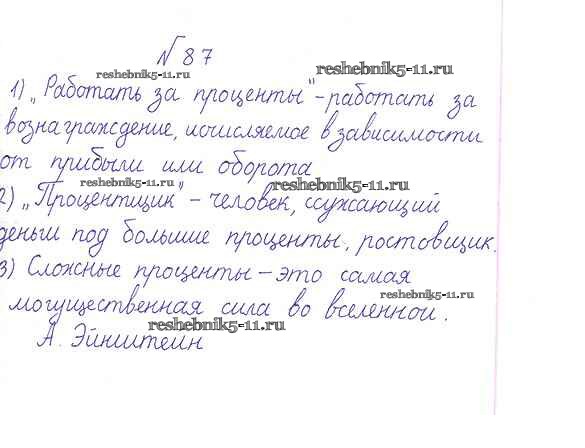 №87
reshebnik5-11.ru
reshebnik5-11.ru
1) „Работать за проценты" – работать за
вознаграждение, исчисляемое в зависимости
от прибыли или оборота
reshebnik5-11.ru
reshebnik5-11.ru
2) „Процентщик" – человек, ссужающий
деньги под большие проценты, ростовщик.
3) Сложные проценты – это самая
могущественная сила во вселенной.
reshebnik5-11.ru
reshebnik5-11.ru
А. Эйнштейн